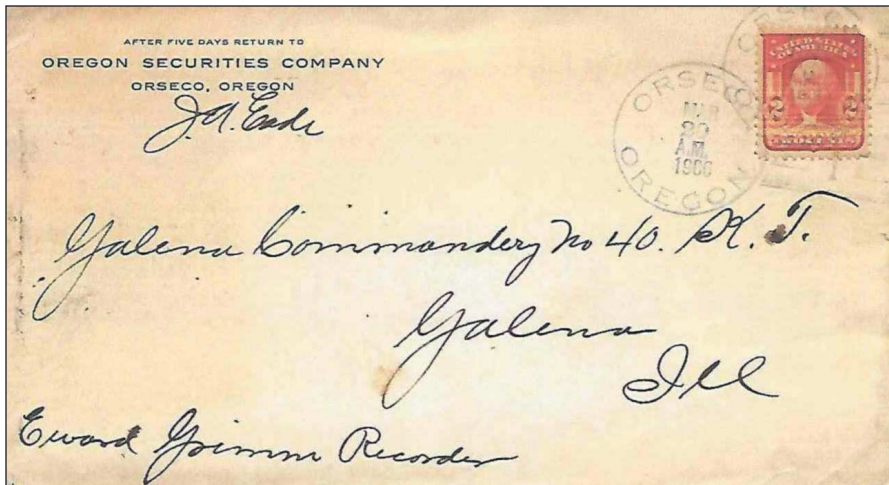 AFTER FIVE DAYS RETURN TO
OREGON SECURITIES COMPANY
ORSECO, OREGON
J. A. Eade
ORSECO
MAR
20
A.M.
1906
OREGON
UNITED STATES
OF AMERICA
2 2
Galena Commandery No 40. K. T.
Galena
Ill
Eward Grimm Recorder